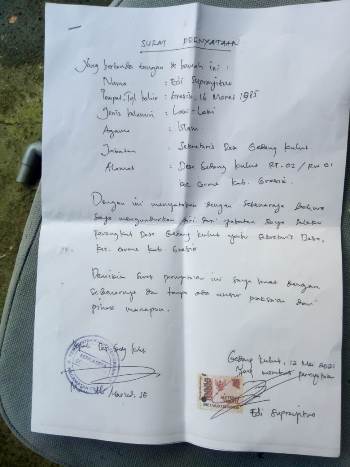 SURAT PERNYATAAN
Yang bertanda tangan di bawah ini :
Nama : Edi Suprayitno
Tempat, Tgl lahir : Gresik, 16 Maret 1985
Jenis kelamin : Laki-Laki
Agama : Islam
Jabatan : Sekretaris Desa Gedang kulut
Alamat : Desa Gedang kulut RT.02 / RW 01
kec Cerme kab. Gresik.
Dengan ini menyatakan dengan sebenarnya bahwa
saya mengundurkan diri dari jabatan saya selaku
perangkat Desa Gedang kulut yaitu sekretaris Desa,
kec. cerme kab. Gresik
Demikian surat pernyataan ini saya buat dengan
sebenarnya dan tanpa ada unsur paksaan dari
pihak manapun.
Gedang kulut, 12 Mei 2021
Yang membuat pernyataan
Edi Suprayitno